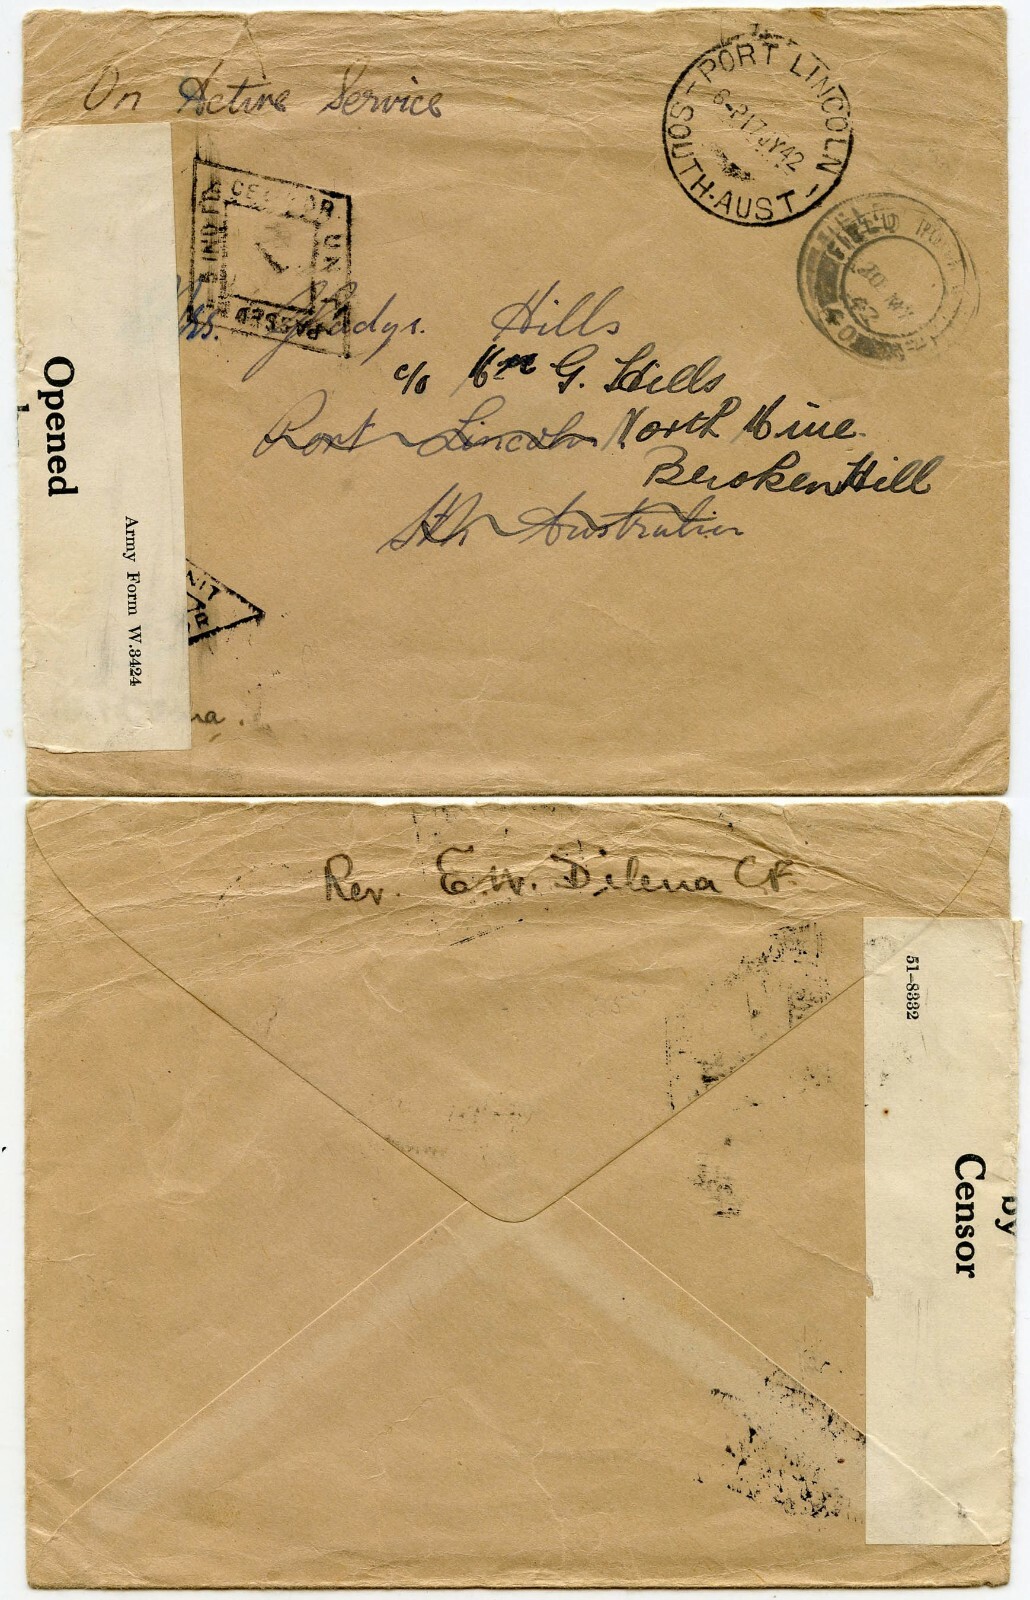 On Active Service
PORT LINCOLN
6-P 17 JY 42
SOUTH.AUST
FIELD
20 MY
42
CENSOR
PASSED
UNIT
Mrs. Gladys. Hills
c/o Mr G. Hills
Port Lincoln North Mine
Broken Hill
Sth Australia
Opened
Army Form W.3424
Rev. E.W. Dilena C.F.
51-8332
by
Censor